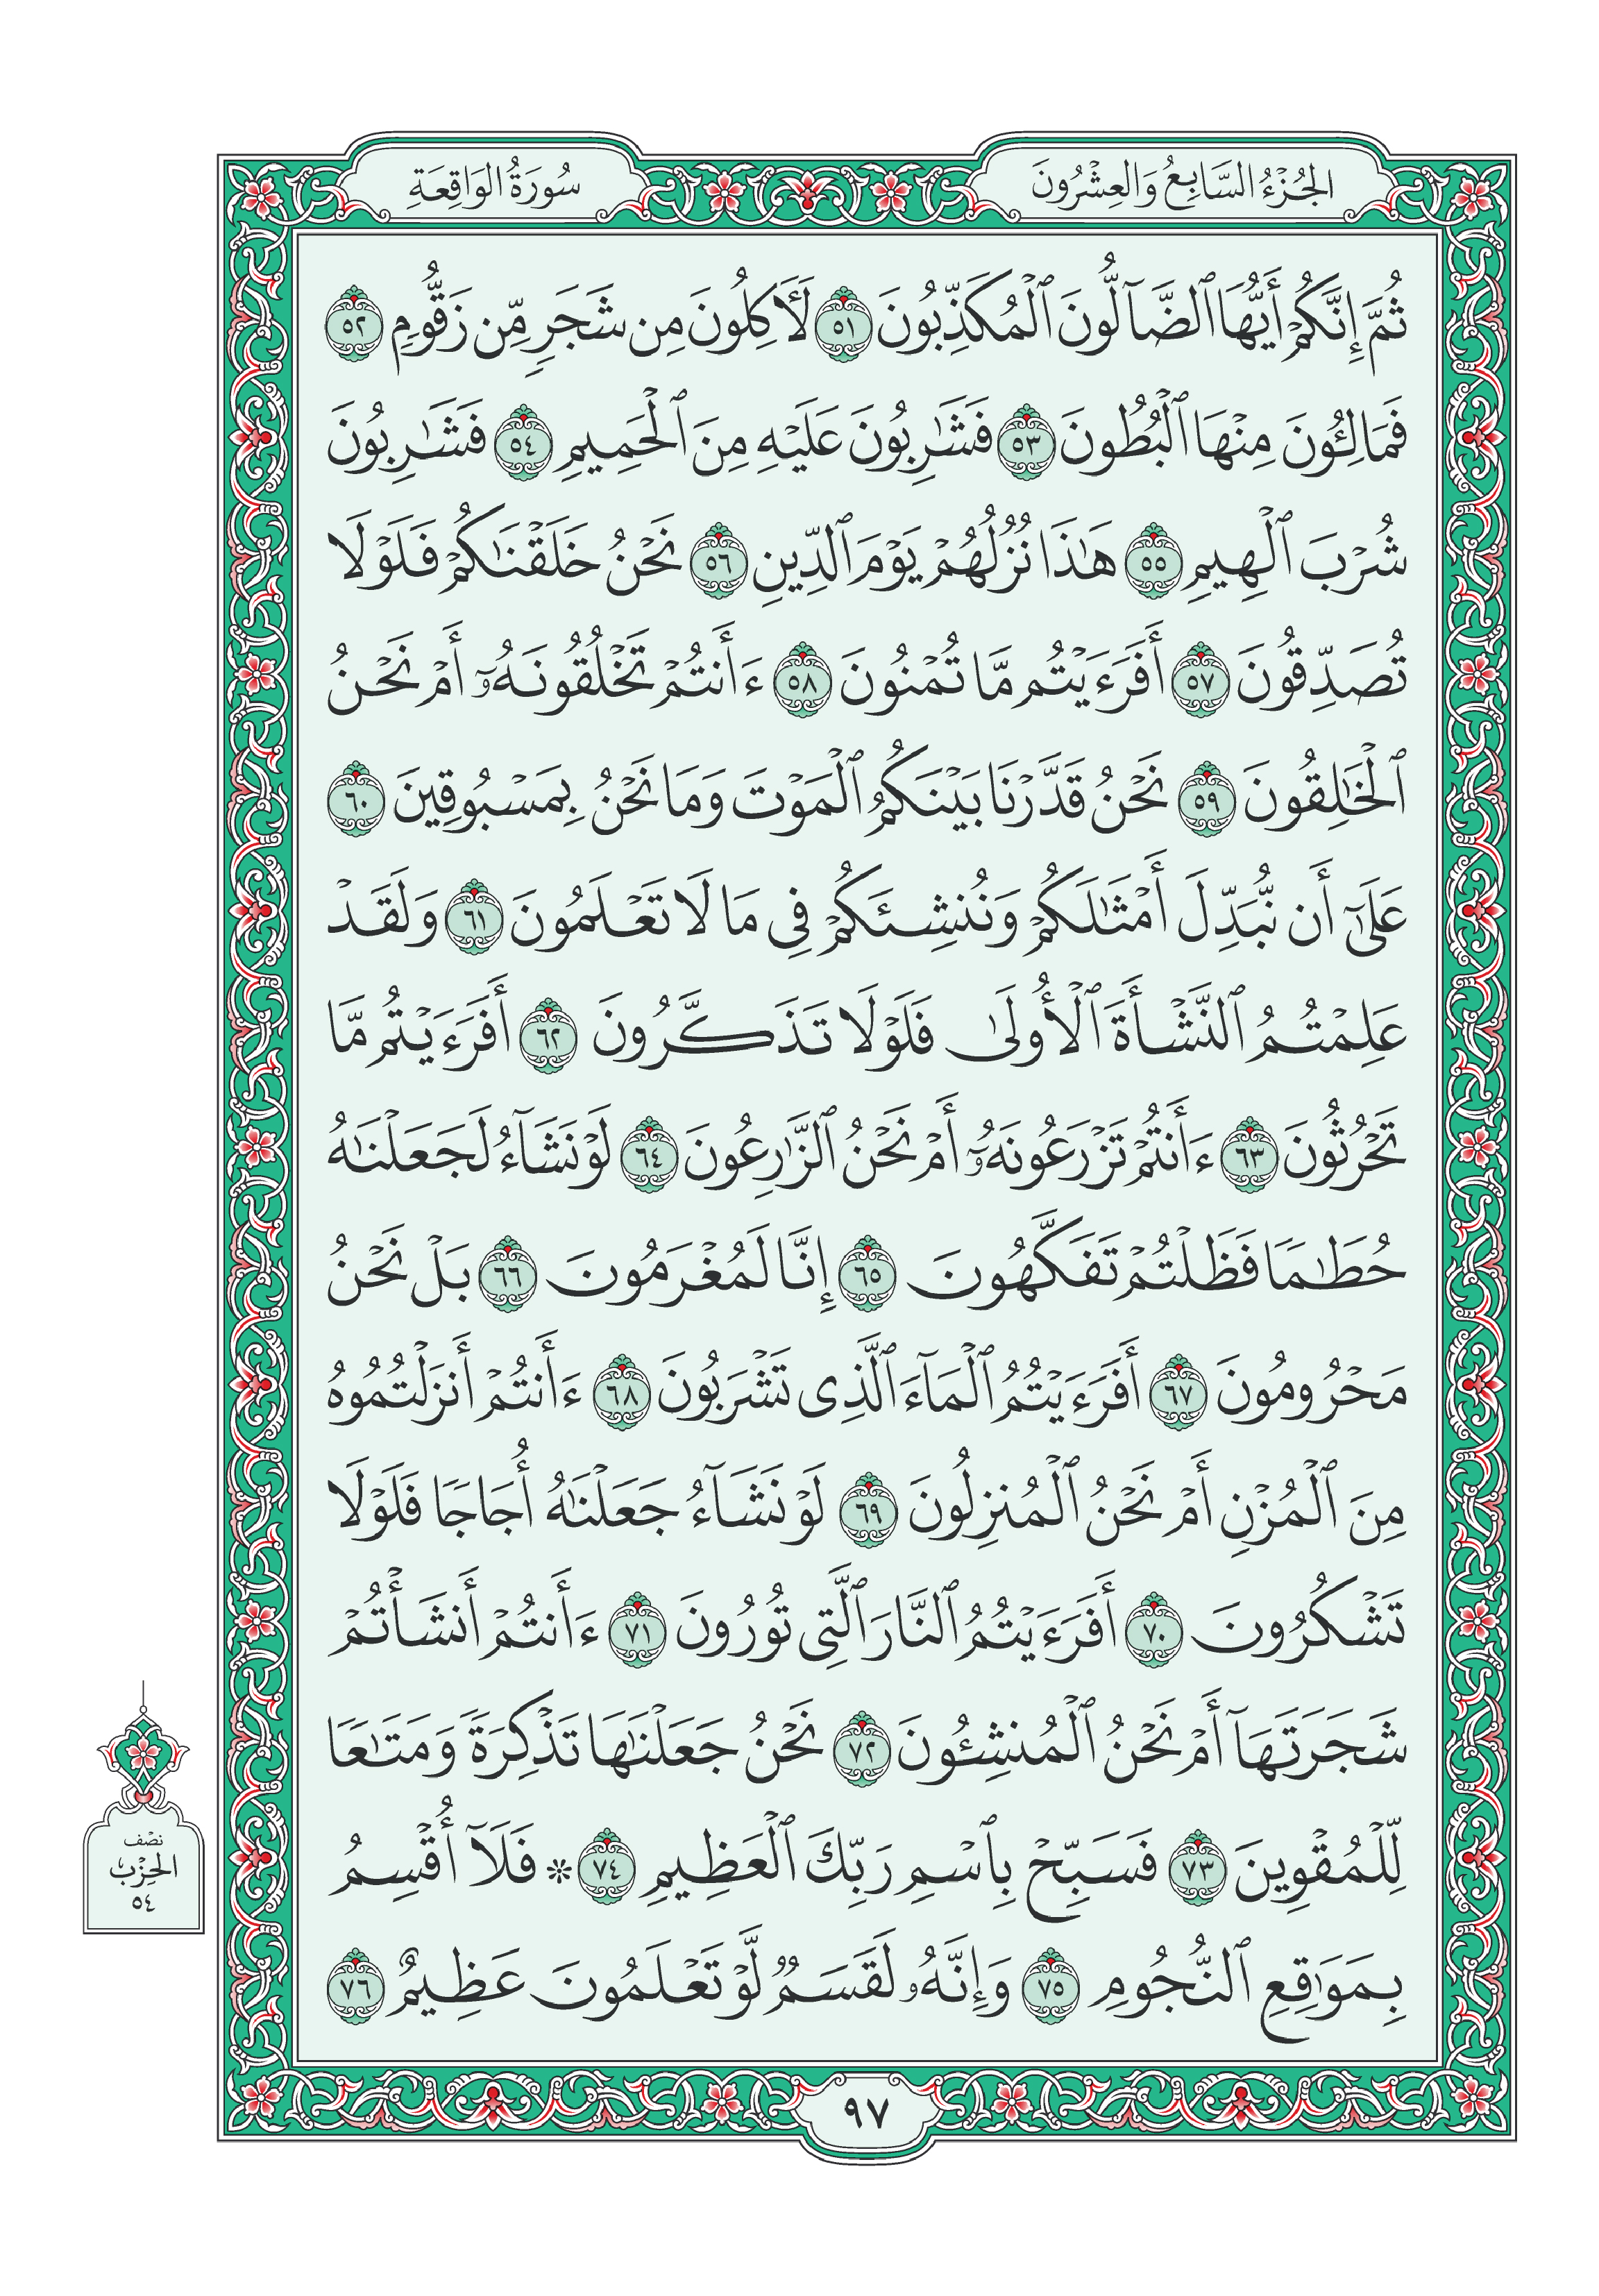 الجُزْءُ السَّابِعُ وَالعِشْرُونَ
سُورَةُ الوَاقِعَةِ
ثُمَّ إِنَّكُمْ أَيُّهَا ٱلضَّآلُّونَ ٱلْمُكَذِّبُونَ ٥١ لَأٓكِلُونَ مِن شَجَرٍ مِّن زَقُّومٍ ٥٢
فَمَالِـُٔونَ مِنْهَا ٱلْبُطُونَ ٥٣ فَشَٰرِبُونَ عَلَيْهِ مِنَ ٱلْحَمِيمِ ٥٤ فَشَٰرِبُونَ
شُرْبَ ٱلْهِيمِ ٥٥ هَٰذَا نُزُلُهُمْ يَوْمَ ٱلدِّينِ ٥٦ نَحْنُ خَلَقْنَٰكُمْ فَلَوْلَا
تُصَدِّقُونَ ٥٧ أَفَرَءَيْتُم مَّا تُمْنُونَ ٥٨ ءَأَنتُمْ تَخْلُقُونَهُۥٓ أَمْ نَحْنُ
ٱلْخَٰلِقُونَ ٥٩ نَحْنُ قَدَّرْنَا بَيْنَكُمُ ٱلْمَوْتَ وَمَا نَحْنُ بِمَسْبُوقِينَ ٦٠
عَلَىٰٓ أَن نُّبَدِّلَ أَمْثَٰلَكُمْ وَنُنشِئَكُمْ فِى مَا لَا تَعْلَمُونَ ٦١ وَلَقَدْ
عَلِمْتُمُ ٱلنَّشْأَةَ ٱلْأُولَىٰ فَلَوْلَا تَذَكَّرُونَ ٦٢ أَفَرَءَيْتُم مَّا
تَحْرُثُونَ ٦٣ ءَأَنتُمْ تَزْرَعُونَهُۥٓ أَمْ نَحْنُ ٱلزَّٰرِعُونَ ٦٤ لَوْ نَشَآءُ لَجَعَلْنَٰهُ
حُطَٰمًا فَظَلْتُمْ تَفَكَّهُونَ ٦٥ إِنَّا لَمُغْرَمُونَ ٦٦ بَلْ نَحْنُ
مَحْرُومُونَ ٦٧ أَفَرَءَيْتُمُ ٱلْمَآءَ ٱلَّذِى تَشْرَبُونَ ٦٨ ءَأَنتُمْ أَنزَلْتُمُوهُ
مِنَ ٱلْمُزْنِ أَمْ نَحْنُ ٱلْمُنزِلُونَ ٦٩ لَوْ نَشَآءُ جَعَلْنَٰهُ أُجَاجًا فَلَوْلَا
تَشْكُرُونَ ٧٠ أَفَرَءَيْتُمُ ٱلنَّارَ ٱلَّتِى تُورُونَ ٧١ ءَأَنتُمْ أَنشَأْتُمْ
شَجَرَتَهَآ أَمْ نَحْنُ ٱلْمُنشِـُٔونَ ٧٢ نَحْنُ جَعَلْنَٰهَا تَذْكِرَةً وَمَتَٰعًا
لِّلْمُقْوِينَ ٧٣ فَسَبِّحْ بِٱسْمِ رَبِّكَ ٱلْعَظِيمِ ٧٤ ۞ فَلَآ أُقْسِمُ
بِمَوَٰقِعِ ٱلنُّجُومِ ٧٥ وَإِنَّهُۥ لَقَسَمٌ لَّوْ تَعْلَمُونَ عَظِيمٌ ٧٦
نصف
الحِزْبُ
٥٤
٩٧